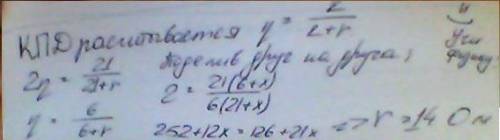 КПД расчитывается η = 2/2+r
2η = 21/21+r Поделив друг на друга;
2 = 21(6+x)/6(21+x)
η = 6/6+r
252+12x = 126+21x => r = 14 Ом